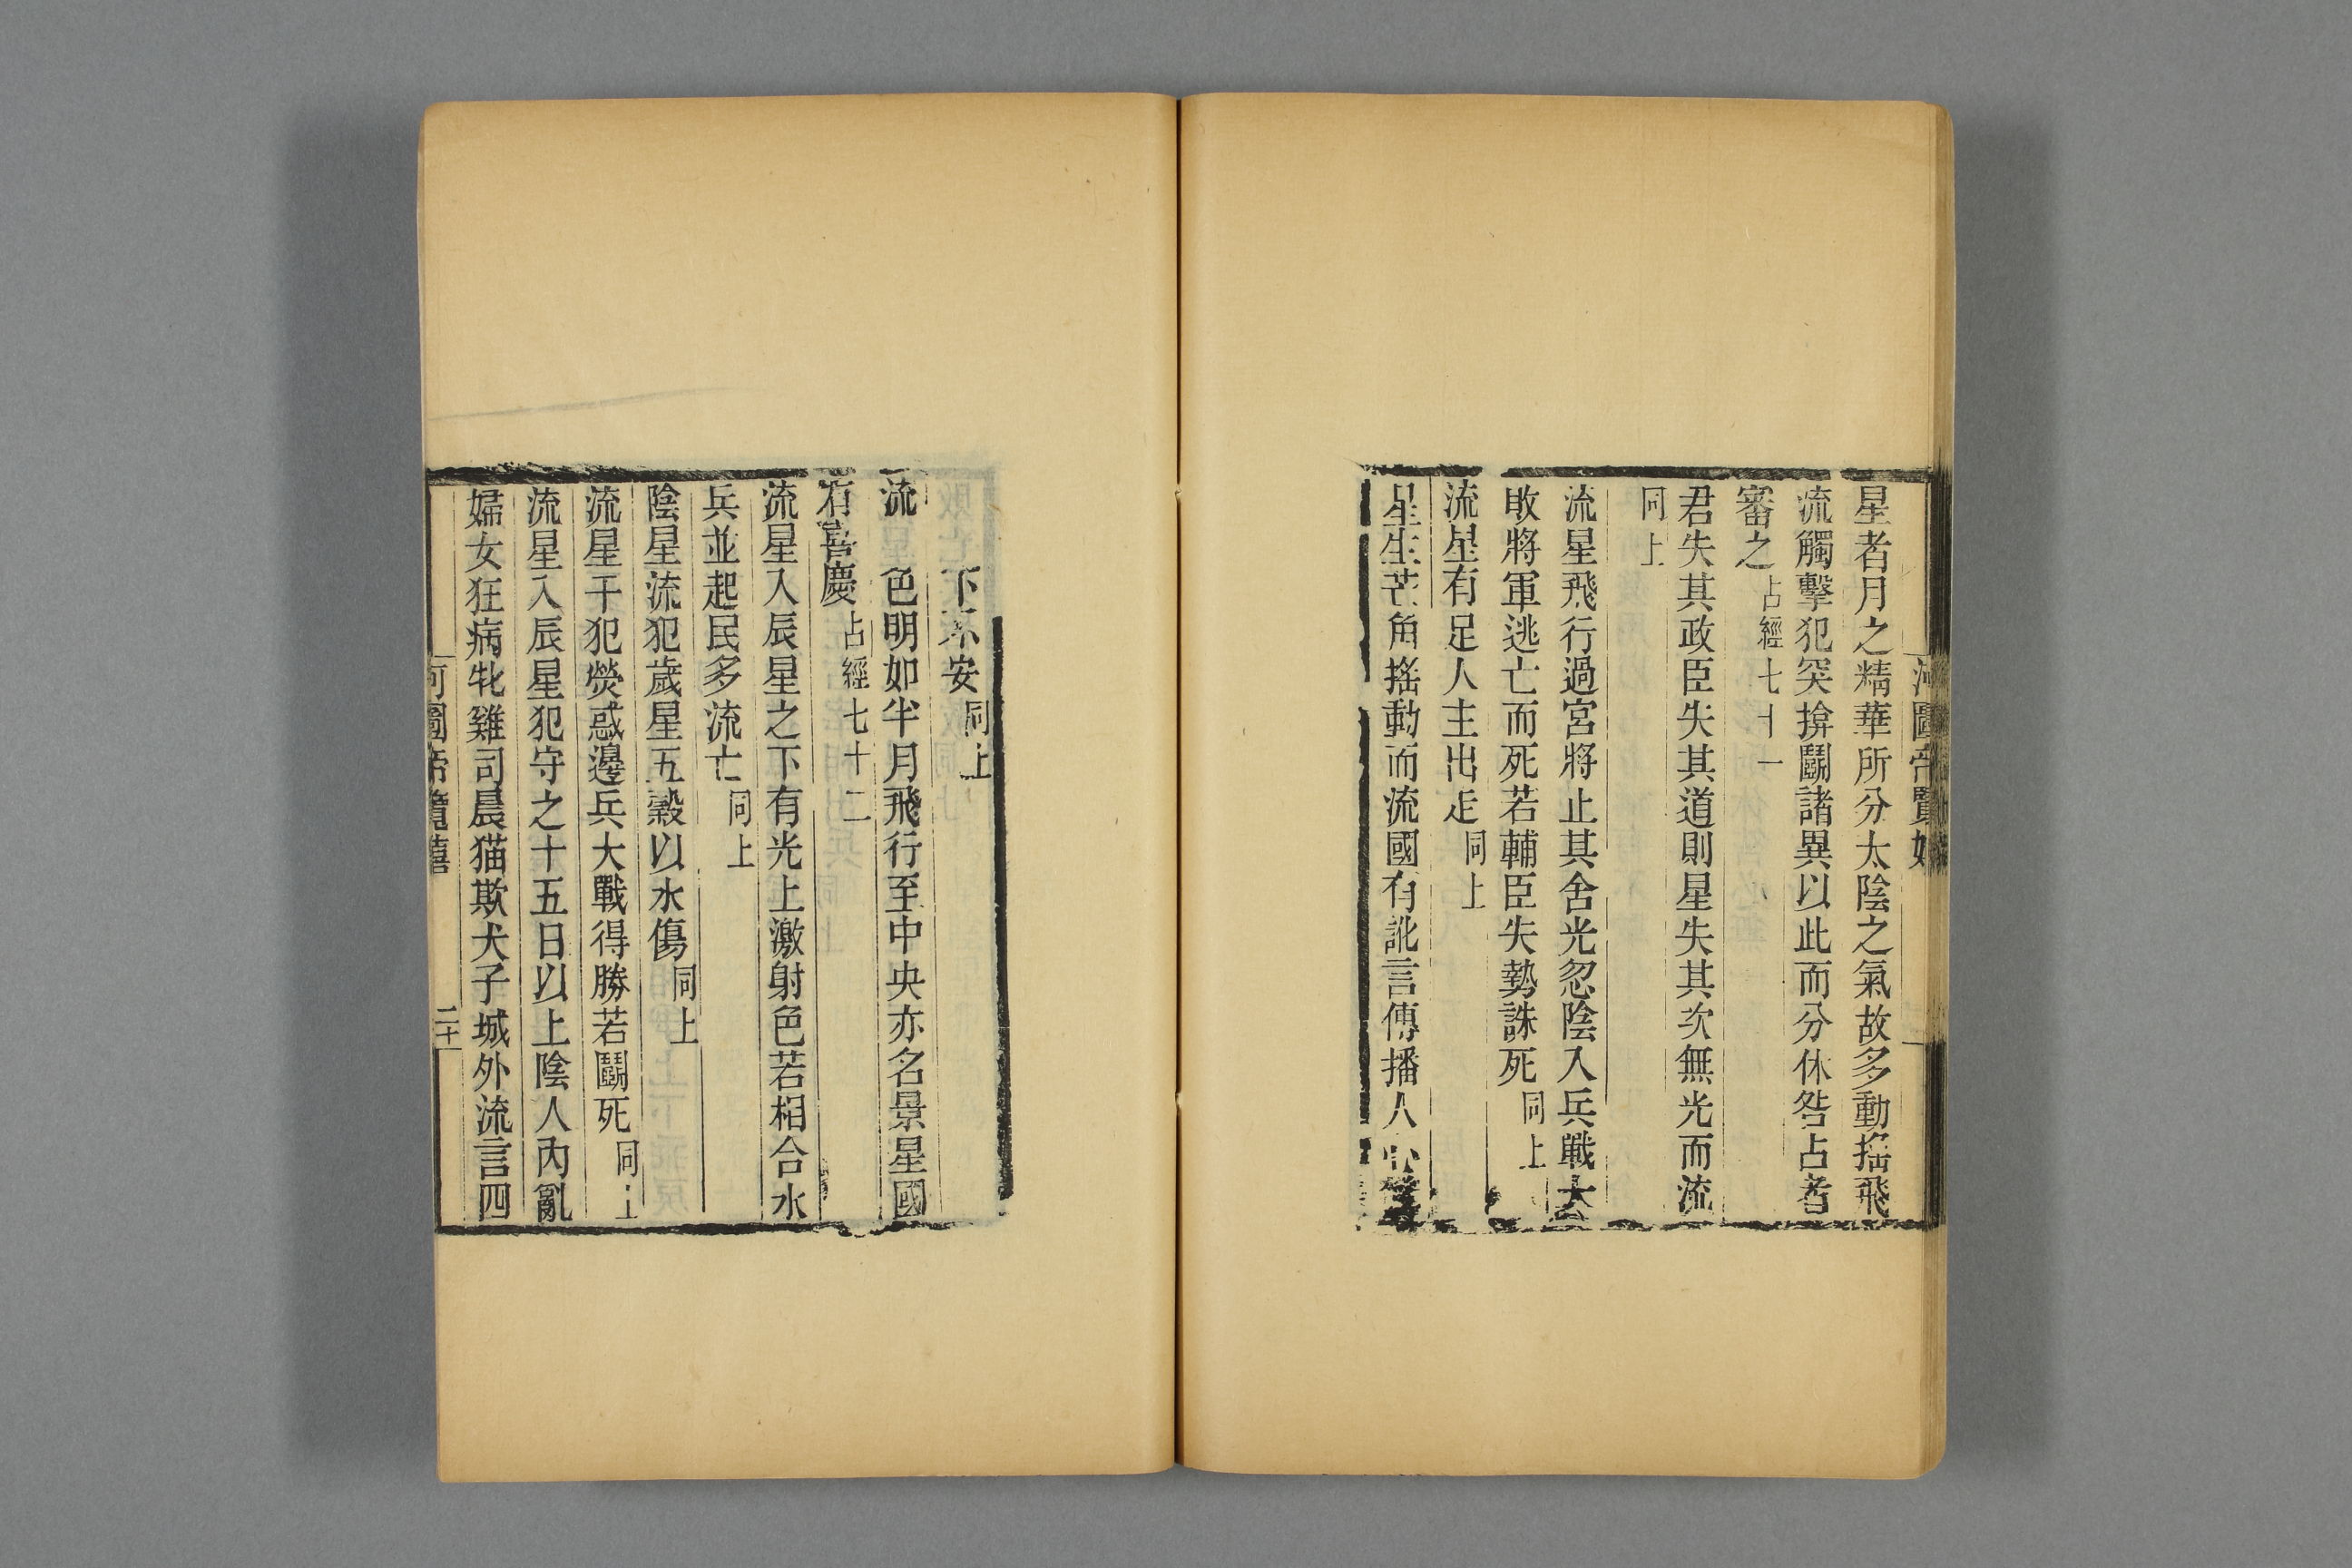 星者月之精華所分太陰之氣故多動搖飛
流觸擊犯突揜鬭諸異以此而分休咎占者
審之占經七十一
君失其政臣失其道則星失其次無光而流
同上
流星飛行過宮將止其舍光忽陰入兵戰大
敗將軍逃亡而死若輔臣失勢誅死同上
流星有足人主出走同上
星生芒角搖動而流國有訛言傳播人心
下不安同上
流 色明如半月飛行至中央亦名景星國
有喜慶占經七十二
流星入辰星之下有光上激射色若相合水
兵並起民多流亡同上
陰星流犯歲星五穀以水傷同上
流星干犯熒惑邊兵大戰得勝若鬭死同上
流星入辰星犯守之十五日以上陰人內亂
婦女狂病牝雞司晨猫欺犬子城外流言四
河圖帝覽嬉 二十